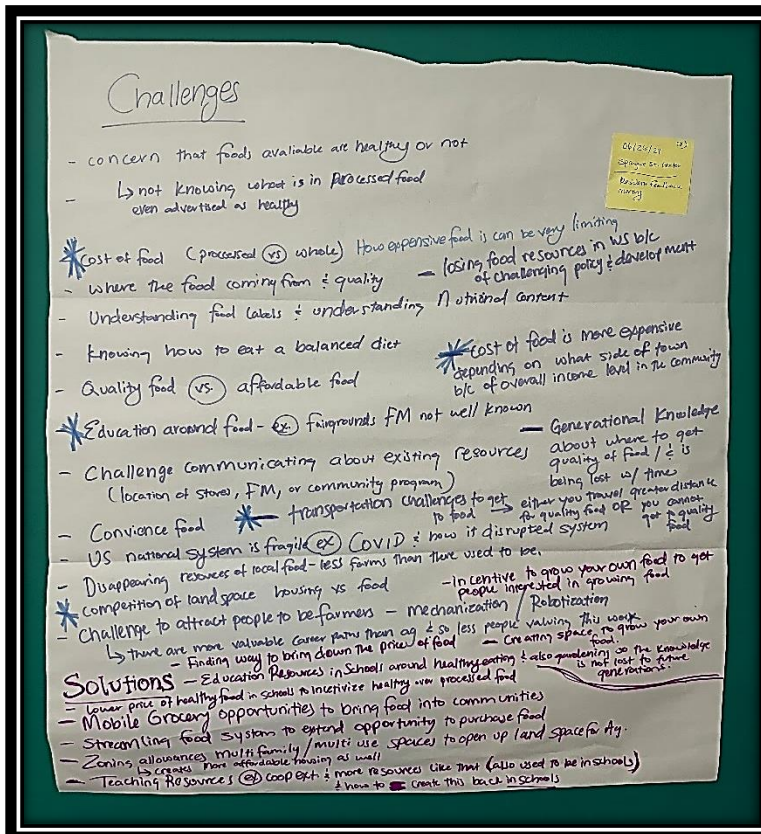 Challenges
06/24/21
- concern that foods avaliable are healthy or not
- ↳ not knowing what is in processed food
even advertised as healthy
* Cost of food (processed vs whole) How expensive food is can be very limiting
- where the food coming from & quality
- losing food resources in WS b/c
of challenging policy & development
- Understanding food labels & understanding Nutrional content
- Knowing how to eat a balanced diet
* Cost of food is more expensive
depending on what side of town
b/c of overall income level in the community
- Quality food vs. affordable food
* Education around food - ex. Fairgrounds FM not well known
- Generational Knowledge
about where to get
quality of food / & is
being lost w/ time
- Challenge communicating about existing resources
(location of stores, FM, or community program)
* - transportation challenges to get
to food → either you travel greater distance
for quality food OR you cannot
get quality
food
- Convience food
- US national system is fragile ex COVID & how it disrupted system
- Disappearing resources of local food - less farms than there used to be.
* competition of land space housing vs food
- incentive to grow your own food to get
people interested in growing food
- Challenge to attract people to be farmers - mechanization / Robotization
↳ there are more valuable career paths than ag & so less people valuing this work
- Finding way to bring down the price of food
- Creating space to grow your own
food.
& also gardening so the knowledge
is not lost to future
generations.
Solutions - Education Resources in Schools around healthy eating
- lower price of healthy food in schools to incetivize healthy over processed food
- Mobile Grocery opportunities to bring food into communities
- Streamling food system to extend opportunity to purchase food
- Zoning allowances multi family / multi use spaces to open up land space for Ag.
↳ creates more affordable housing as well
- Teaching Resources ex coop ext & more resources like that (also used to be in schools)
& how to create this back in schools